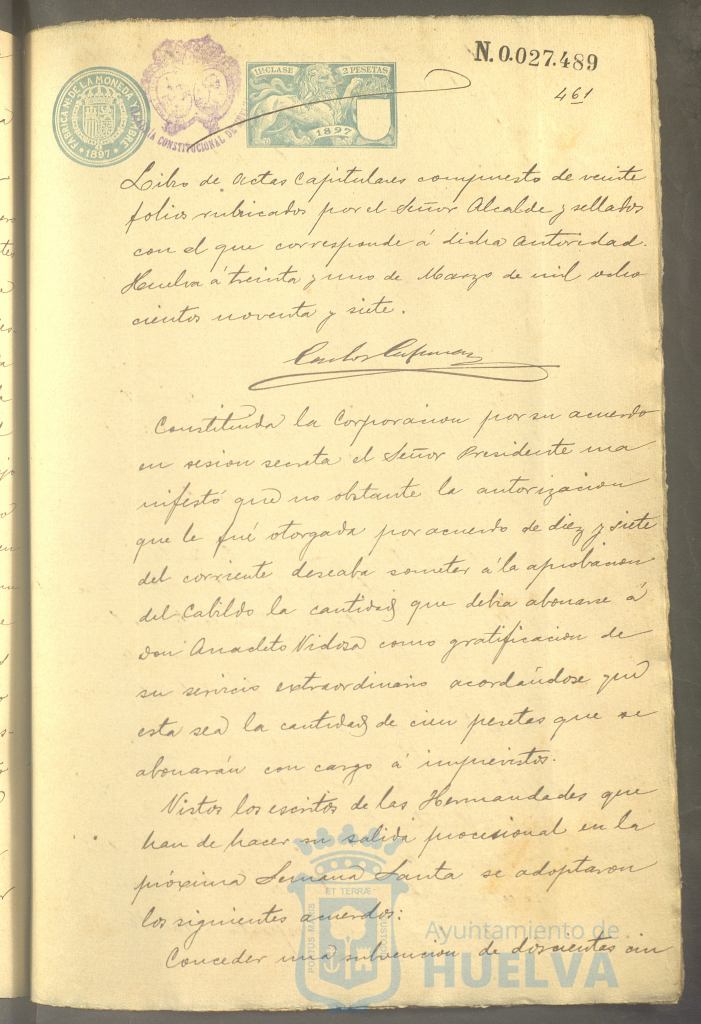 N. 0.027.489
461
FABRICA NAL DE LA MONEDA Y TIMBRE
1897
CONSTITUCIONAL DE
11ª CLASE 2 PESETAS
1897
Libro de Actas Capitulares compuesto de veinte
folios rubricados por el Señor Alcalde y sellados
con el que corresponde á dicha autoridad.
Huelva á treinta y uno de Marzo de mil ocho
cientos noventa y siete.
Carlos
Constituida la Corporacion por su acuerdo
en sesion secreta el Señor Presidente ma
nifestó que no obstante la autorizacion
que le fué otorgada por acuerdo de diez y siete
del corriente deseaba someter á la aprobacion
del Cabildo la cantidad que debia abonarse á
Don Anacleto Vidosa como gratificacion de
su servicio extraordinario acordandose que
esta sea la cantidad de cien pesetas que se
abonarán con cargo á imprevistos.
Vistos los escritos de las Hermandades que
han de hacer su salida procesional en la
próxima Semana Santa se adoptaron
los siguientes acuerdos:
Conceder una subvencion de doscientas cin
PORTUS MARIS
ET TERRAE
CUSTODIA
Ayuntamiento de
HUELVA